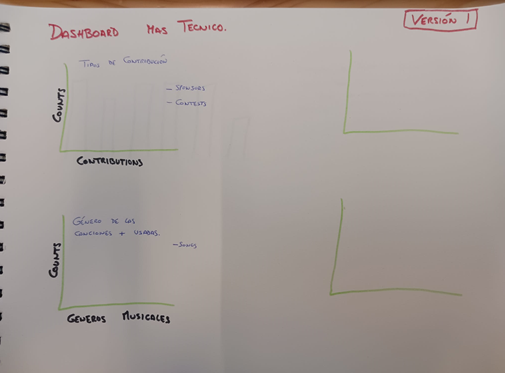 DASHBOARD MAS TECNICO.
VERSIÓN 1
TIPOS DE CONTRIBUCIÓN
- SPONSORS
- CONTESTS
COUNTS
CONTRIBUTIONS
GÉNERO DE LAS
CANCIONES + USADAS.
- SONGS
COUNTS
GENEROS MUSICALES